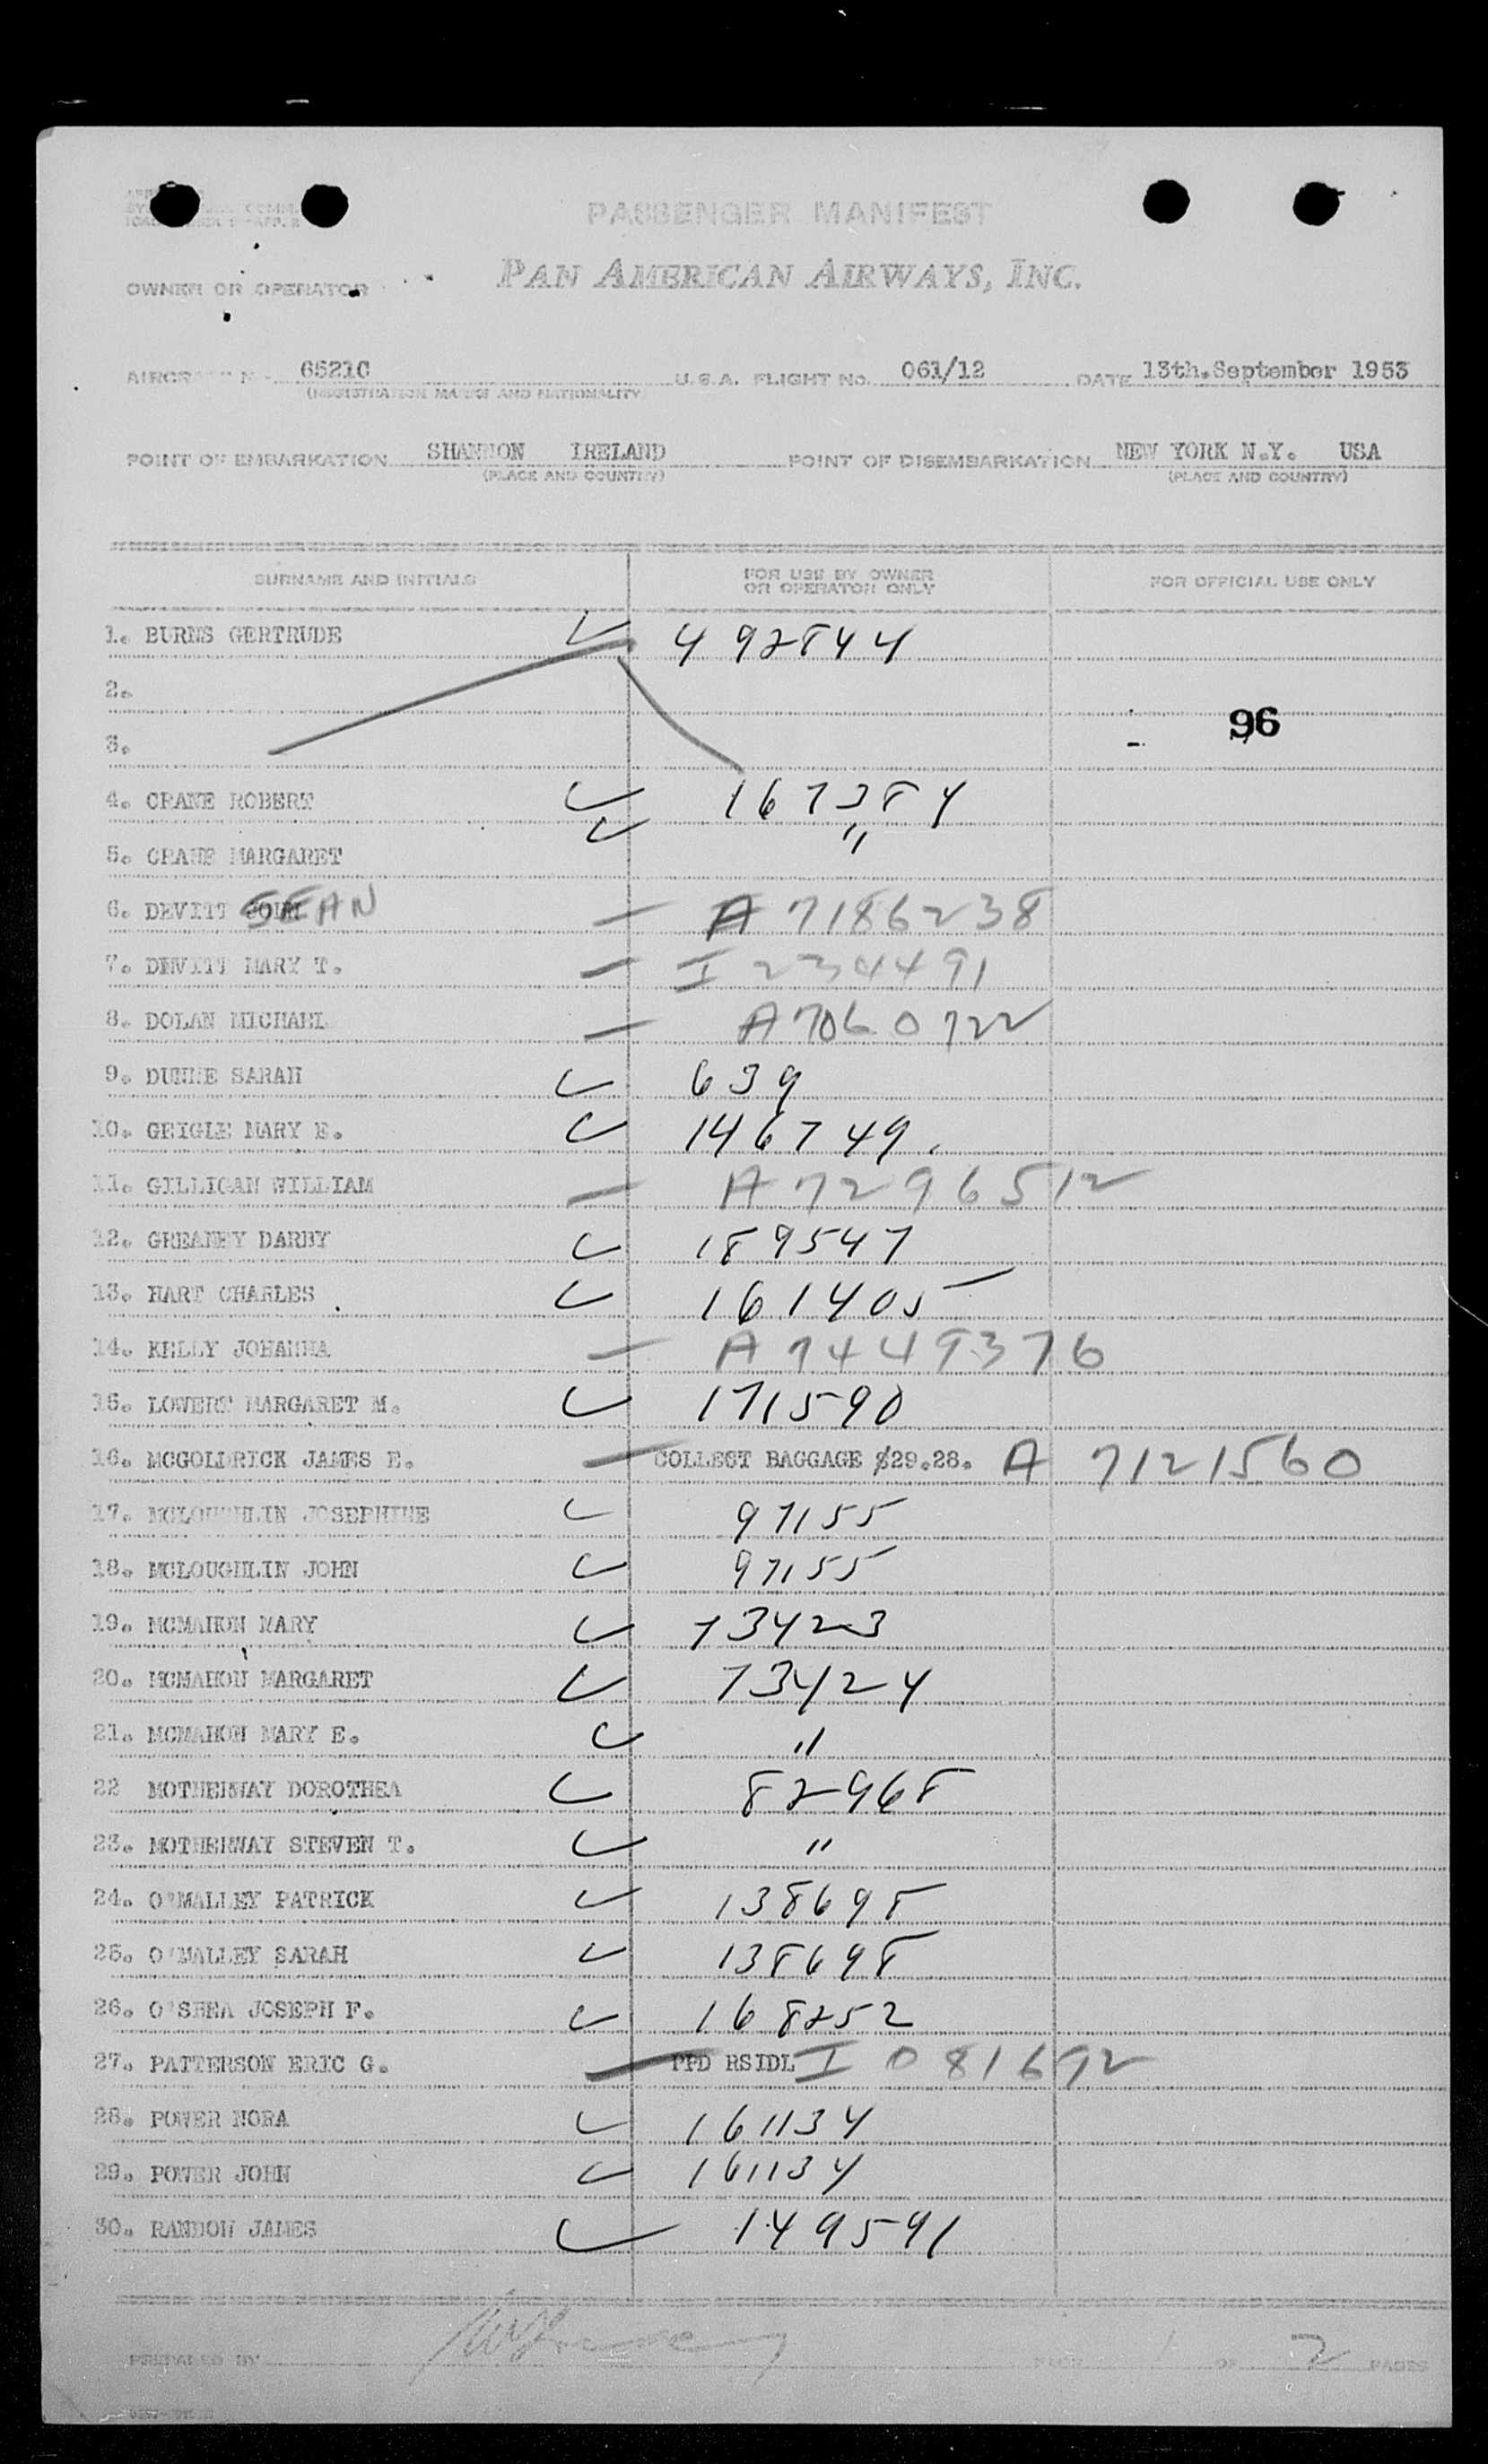 PASSENGER MANIFEST
OWNER OR OPERATOR PAN AMERICAN AIRWAYS, INC.
65210 U.S.A. FLIGHT NO. 061/12 DATE 13th.September 1953
(REGISTRATION MARKS AND NATIONALITY)
POINT OF EMBARKATION SHANNON IRELAND POINT OF DISEMBARKATION NEW YORK N.Y. USA
(PLACE AND COUNTRY) (PLACE AND COUNTRY)
SURNAME AND INITIALS FOR USE BY OWNER OR OPERATOR ONLY FOR OFFICIAL USE ONLY
1. BURNS GERTRUDE 492844
2.
96
3.
4. CRANE ROBERT 167384
5. CRANE MARGARET "
6. DEVITT SEAN A 7186238
7. DEVITT MARY T. I 234491
8. DOLAN MICHAEL A7060722
9. DUNNE SARAH 639
10. GEIGLE MARY E. 146749.
11. GILLIGAN WILLIAM A7296512
12. GREANEY DARBY 189547
13. HART CHARLES 161405
14. KELLY JOHANNA A7449376
15. LOWERY MARGARET M. 171590
16. MCGOLDRICK JAMES E. COLLECT BAGGAGE $29.28. A 7121560
17. MCLOUGHLIN JOSEPHINE 97155
18. MCLOUGHLIN JOHN 97155
19. MCMAHON MARY 73423
20. MCMAHON MARGARET 73424
21. MCMAHON MARY E. "
22 MOTHERWAY DOROTHEA 82968
23. MOTHERWAY STEVEN T. "
24. O'MALLEY PATRICK 138698
25. O'MALLEY SARAH 138698
26. O'SHEA JOSEPH F. 168252
27. PATTERSON ERIC G. PPD RSIDL I 081692
28. POWER NORA 161134
29. POWER JOHN 161134
30. RANDON JAMES 149591
PREPARED BY PAGE 1 OF 2 PAGES